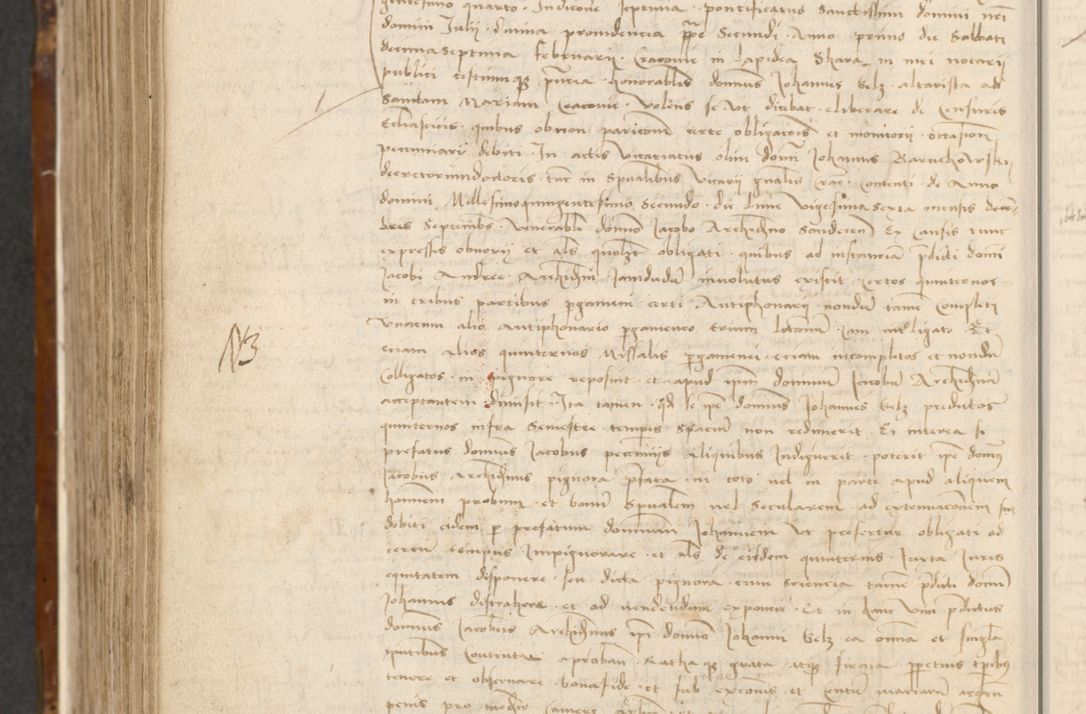 gentesimo quarto · Indictione Septima · pontificatus Sanctissimi domini nri
domini Julii · divina providencia ppe Secundi · Anno primo die Sabbati
decimaseptima februarii · Cracovie in lapidea Skara in mei notarii
publici testiumque pntia · honorabilis dominus Johannes Gelz · altarista ad
Sanctam Mariam Cracovie · Volens se ut dicebat · eliberare de Censuris
Ecclasticis · quibus obtione certe obligacionis et monitorii · occasione
pecuniarii debiti · In actis Vicariatus olim domi Johannis Baruchowski
decretorum doctoris · tunc in Spualibus Vicarii gnalis · Crac · contenti · de Anno
domini Millesimoquingentesimo Secundo · die lune Vigesima Sexta mensis
Septembris · Venerabli domino Jacobo Archidno Sandecen Ex Causis tunc
expressis obnoxii et als quolzt obligati · quibus ad instanciam pdicti domini
Jacobi Andree · Archidni Jamdudum involutus existit · Certos quinternos
in tribus partibus pgameni certi Antiphonarii · nondum tamen Completi
Unacum alio antiphonario pgameneo trium Jam ligato · Et
N3
eciam alios quinternos Missalis pgamenei · eciam incompletos et nondum
Colligatos · in pignore reposuit · et · apud ipm dominum Jacobum Archidnum
acceptantem dimisit · Ita tamen · qd se ipe dominus Johannes Gelz predictos
quinternos infra Semestre · temporis Spacium non redimerit · Et interea si
prefatus dominus Jacobus peccuniis aliquibus Indiguerit · poterit ipe domnus
Jacobus Archidnus pignora pfata in toto vel in parte apud aliquem
hominem probum · et bonum Spualem vel Secularem · ad extenuacionem
debiti eidem p prefatum dominum Johannem Ut prefertur obligati ad
certum tempus Impignorare · et als de eisdem quinternis · Iuxta Iuris
equitatem disponere · seu dicta pignora · cum sciencia tamen pdicti domini
Johannis distrahere · et ad vendendum exponere · Et in hanc Vim pdictus
dominus Jacobus Archidnus ipi domino Johanni Gelz ea omnia et singla
aproban · Ratha que grata · atque firma · ppetuis tpibus
tenere et observare bonafide · et sub exconis et Centum marcarum argenti
penis pro medio